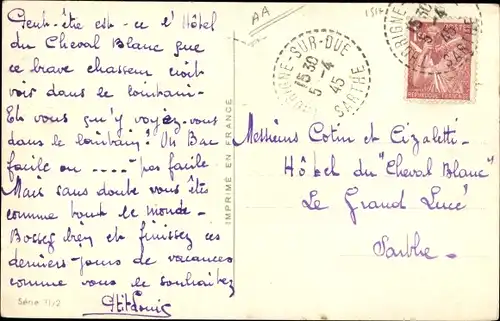 Peut-être est-ce l'Hôtel
du Cheval Blanc que
ce brave chasseur croit
voir dans le lointain -
Et vous qu'y voyez-vous
dans le lointain? Un Bac
facile ou ---- pas facile
Mais sans doute vous êtes
comme tout le monde -
Bossez bien et finissez ces
derniers jours de vacances
comme vous le souhaitez
Ptit Louis
Série 11/2
IMPRIMÉ EN FRANCE
AA
-SUR-DUE
15 30
5-4
45
SARTHE
15 30
5-4
45
SARTHE
Messieurs Cotin et Cizaletti-
Hôtel du "Cheval Blanc"
Le Grand Lucé
Sarthe-